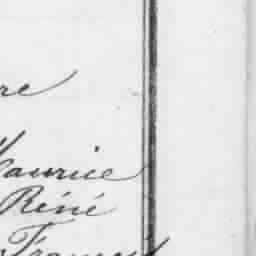 re
Maurice
Réné
François